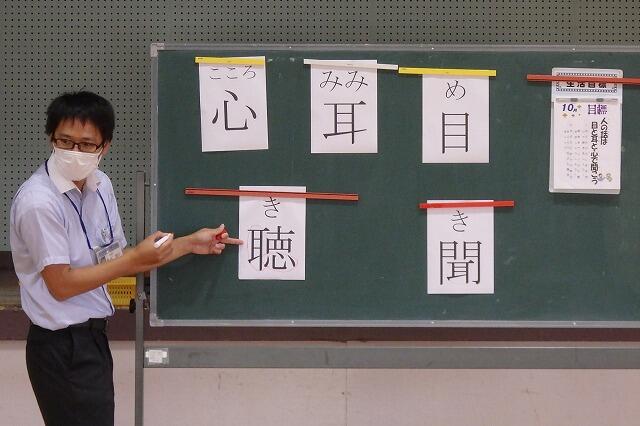 こころ
心
みみ
耳
め
目
き
聴
き
聞
生活目標
10月 目標
人の話は
目と耳と心で聞こう